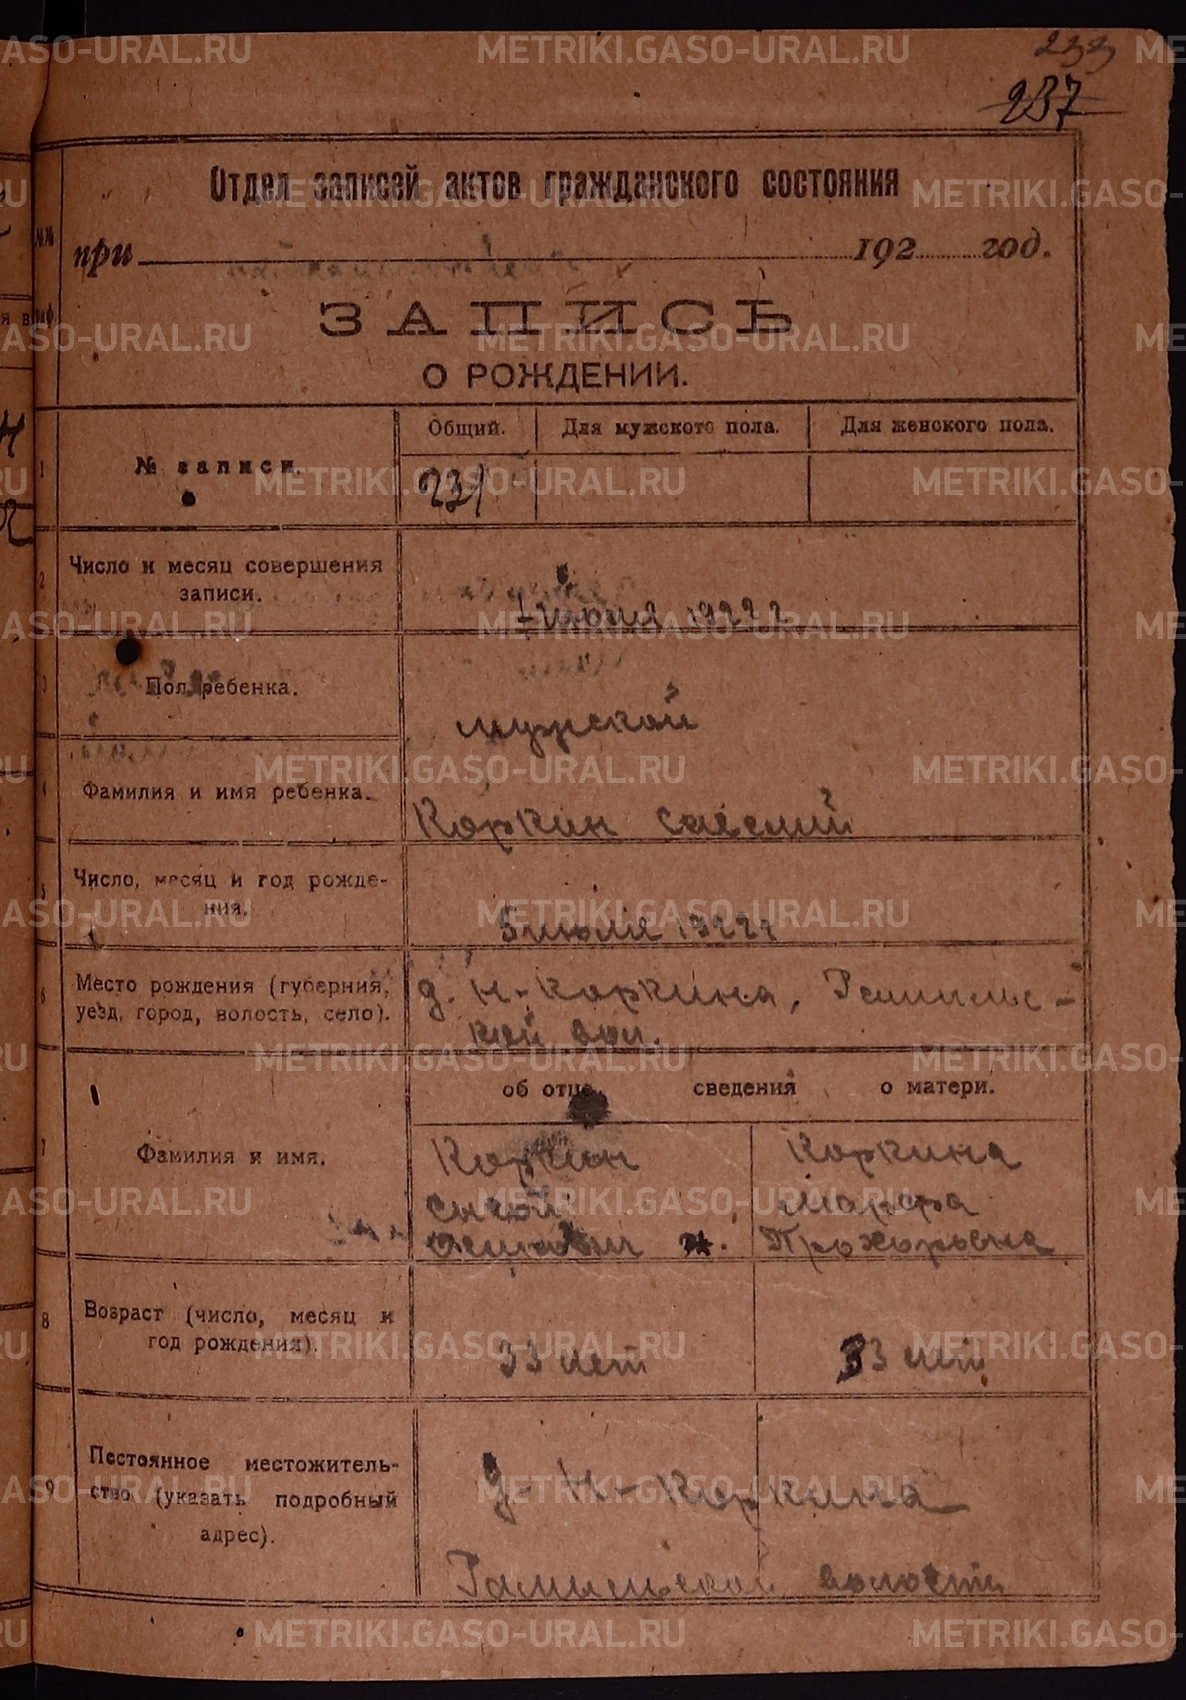 233
237
Отдел записей актов гражданского состояния
при 192 год.
ЗАПИСЬ
О РОЖДЕНИИ.
№ записи. Общий. Для мужского пола. Для женского пола.
1 231
2 Число и месяц совершения записи.
июля 1922 г.
3 Пол ребенка.
мужской
4 Фамилия и имя ребенка.
Коркин
5 Число, месяц и год рождения.
5 июля 1922 г
6 Место рождения (губерния, уезд, город, волость, село).
д. Н-Коркина,
кой вол.
об отце. сведения о матери.
7 Фамилия и имя.
Коркин Коркина
Марфа
Прохоровна
8 Возраст (число, месяц и год рождения).
33 лет 33 лет
9 Постоянное местожительство (указать подробный адрес).
д. Н-Коркина
волости
METRIKI.GASO-URAL.RU